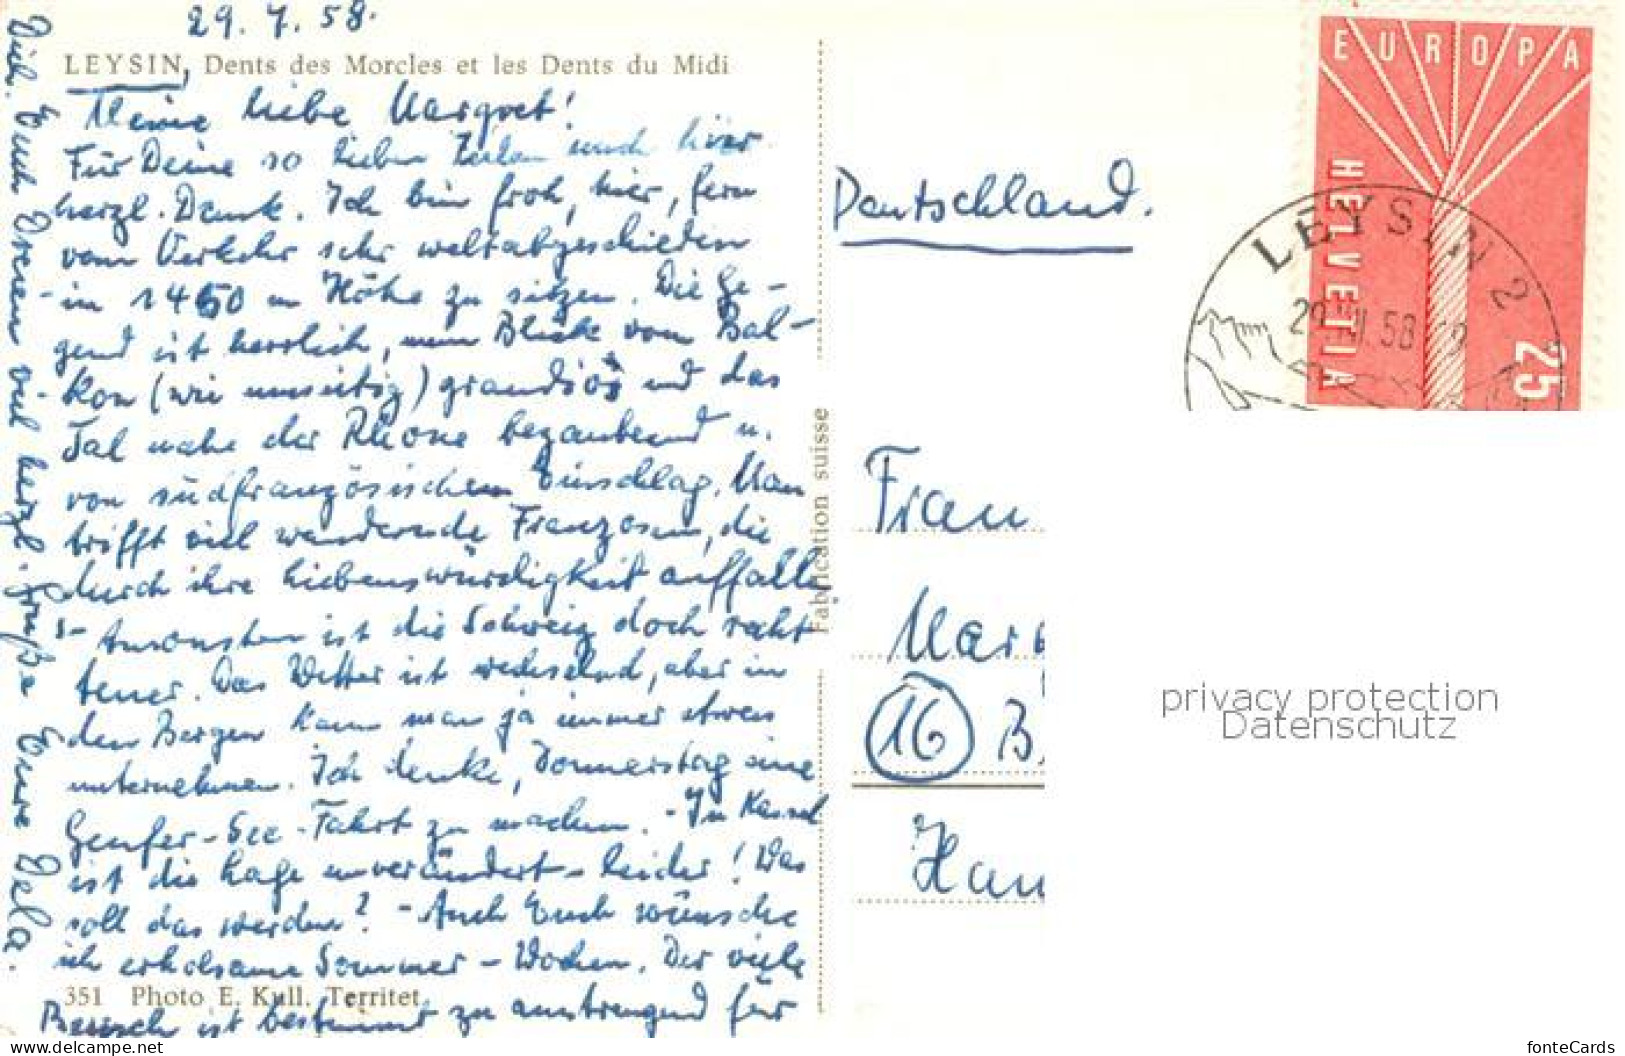 29. 7. 58.
LEYSIN, Dents des Morcles et les Dents du Midi
Meine liebe Margret!
Für Deine so lieben Zeilen auch hier
herzl. Dank. Ich bin froh, hier, fern
vom Verkehr sehr weltabgeschieden
in 1450 m Höhe zu sitzen. Die Ge-
gend ist herrlich, mein Blick vom Bal-
kon (wie umseitig) grandios und das
Tal nahe der Rhone bezaubernd u.
von südfranzösischem Einschlag. Man
trifft viel wandernde Franzosen, die
durch ihre Liebenswürdigkeit auffallen
Ansonsten ist die Schweiz doch recht
teuer. Das Wetter ist wechselnd, aber in
den Bergen kann man ja immer etwas
unternehmen. Ich denke, Donnerstag eine
Genfer-See-Fahrt zu machen. - In Kassel
ist die Lage unverändert - leider! Was
soll das werden? - Auch Euch wünsche
ich erholsame Sommer-Wochen. Der viele
351 Photo E. Kull, Territet
Besuch ist bestimmt zu anstrengend für
Dich. Euch Dreien viel herzl. Grüße Eure Dela.
Fabrication suisse
EUROPA
HELVETIA
25
LEYSIN 2
58
Deutschland.
Frau
Mar
(16) B
Hau
privacy protection
Datenschutz
fonteCards
www.delcampe.net